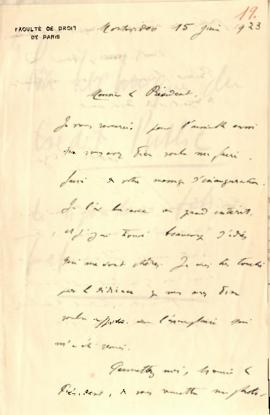 19.
FACULTE DE DROIT
DE PARIS
Montevideo 15 juin 1923
Monsieur le Président,
Je vous remercie pour l'aimable envoi
que vous avez bien voulu me faire
faire de votre message d'inauguration.
Je l'ai lu avec un grand intérêt,
et j'y ai trouvé beaucoup d'idées
qui me sont chères. Je suis très touché
par la dédicace que vous avez bien
voulu sur l'exemplaire qui
m'a été remis.
Permettez moi, Monsieur le
Président, de vous remettre ma photo-